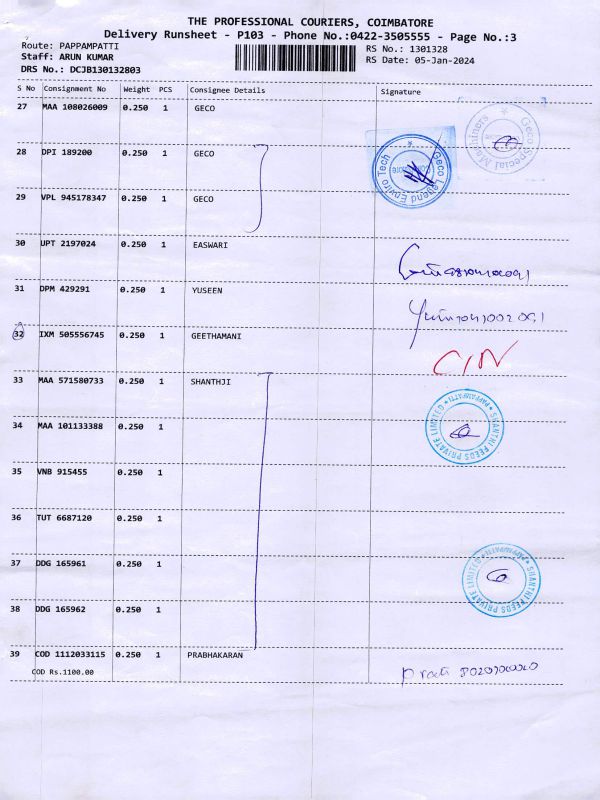 THE PROFESSIONAL COURIERS, COIMBATORE
Delivery Runsheet - P103 - Phone No.:0422-3505555 - Page No.:3
Route: PAPPAMPATTI RS No.: 1301328
Staff: ARUN KUMAR RS Date: 05-Jan-2024
DRS No.: DCJB130132803
S No Consignment No Weight PCS Consignee Details Signature
27 MAA 108026009 0.250 1 GECO
Geco Special Machiners
28 DPI 189200 0.250 1 GECO
Geco Legend Enviro Tech
29 VPL 945178347 0.250 1 GECO
30 UPT 2197024 0.250 1 EASWARI
31 DPM 429291 0.250 1 YUSEEN
32 IXM 505556745 0.250 1 GEETHAMANI
33 MAA 571580733 0.250 1 SHANTHJI
34 MAA 101133388 0.250 1
SHANTHI FEEDS PRIVATE LIMITED PAPPAMPATTI
35 VNB 915455 0.250 1
36 TUT 6687120 0.250 1
37 DDG 165961 0.250 1
SHANTHI FEEDS PRIVATE LIMITED PAPPAMPATTI
38 DDG 165962 0.250 1
39 COD 1112033115 0.250 1 PRABHAKARAN
COD Rs.1100.00